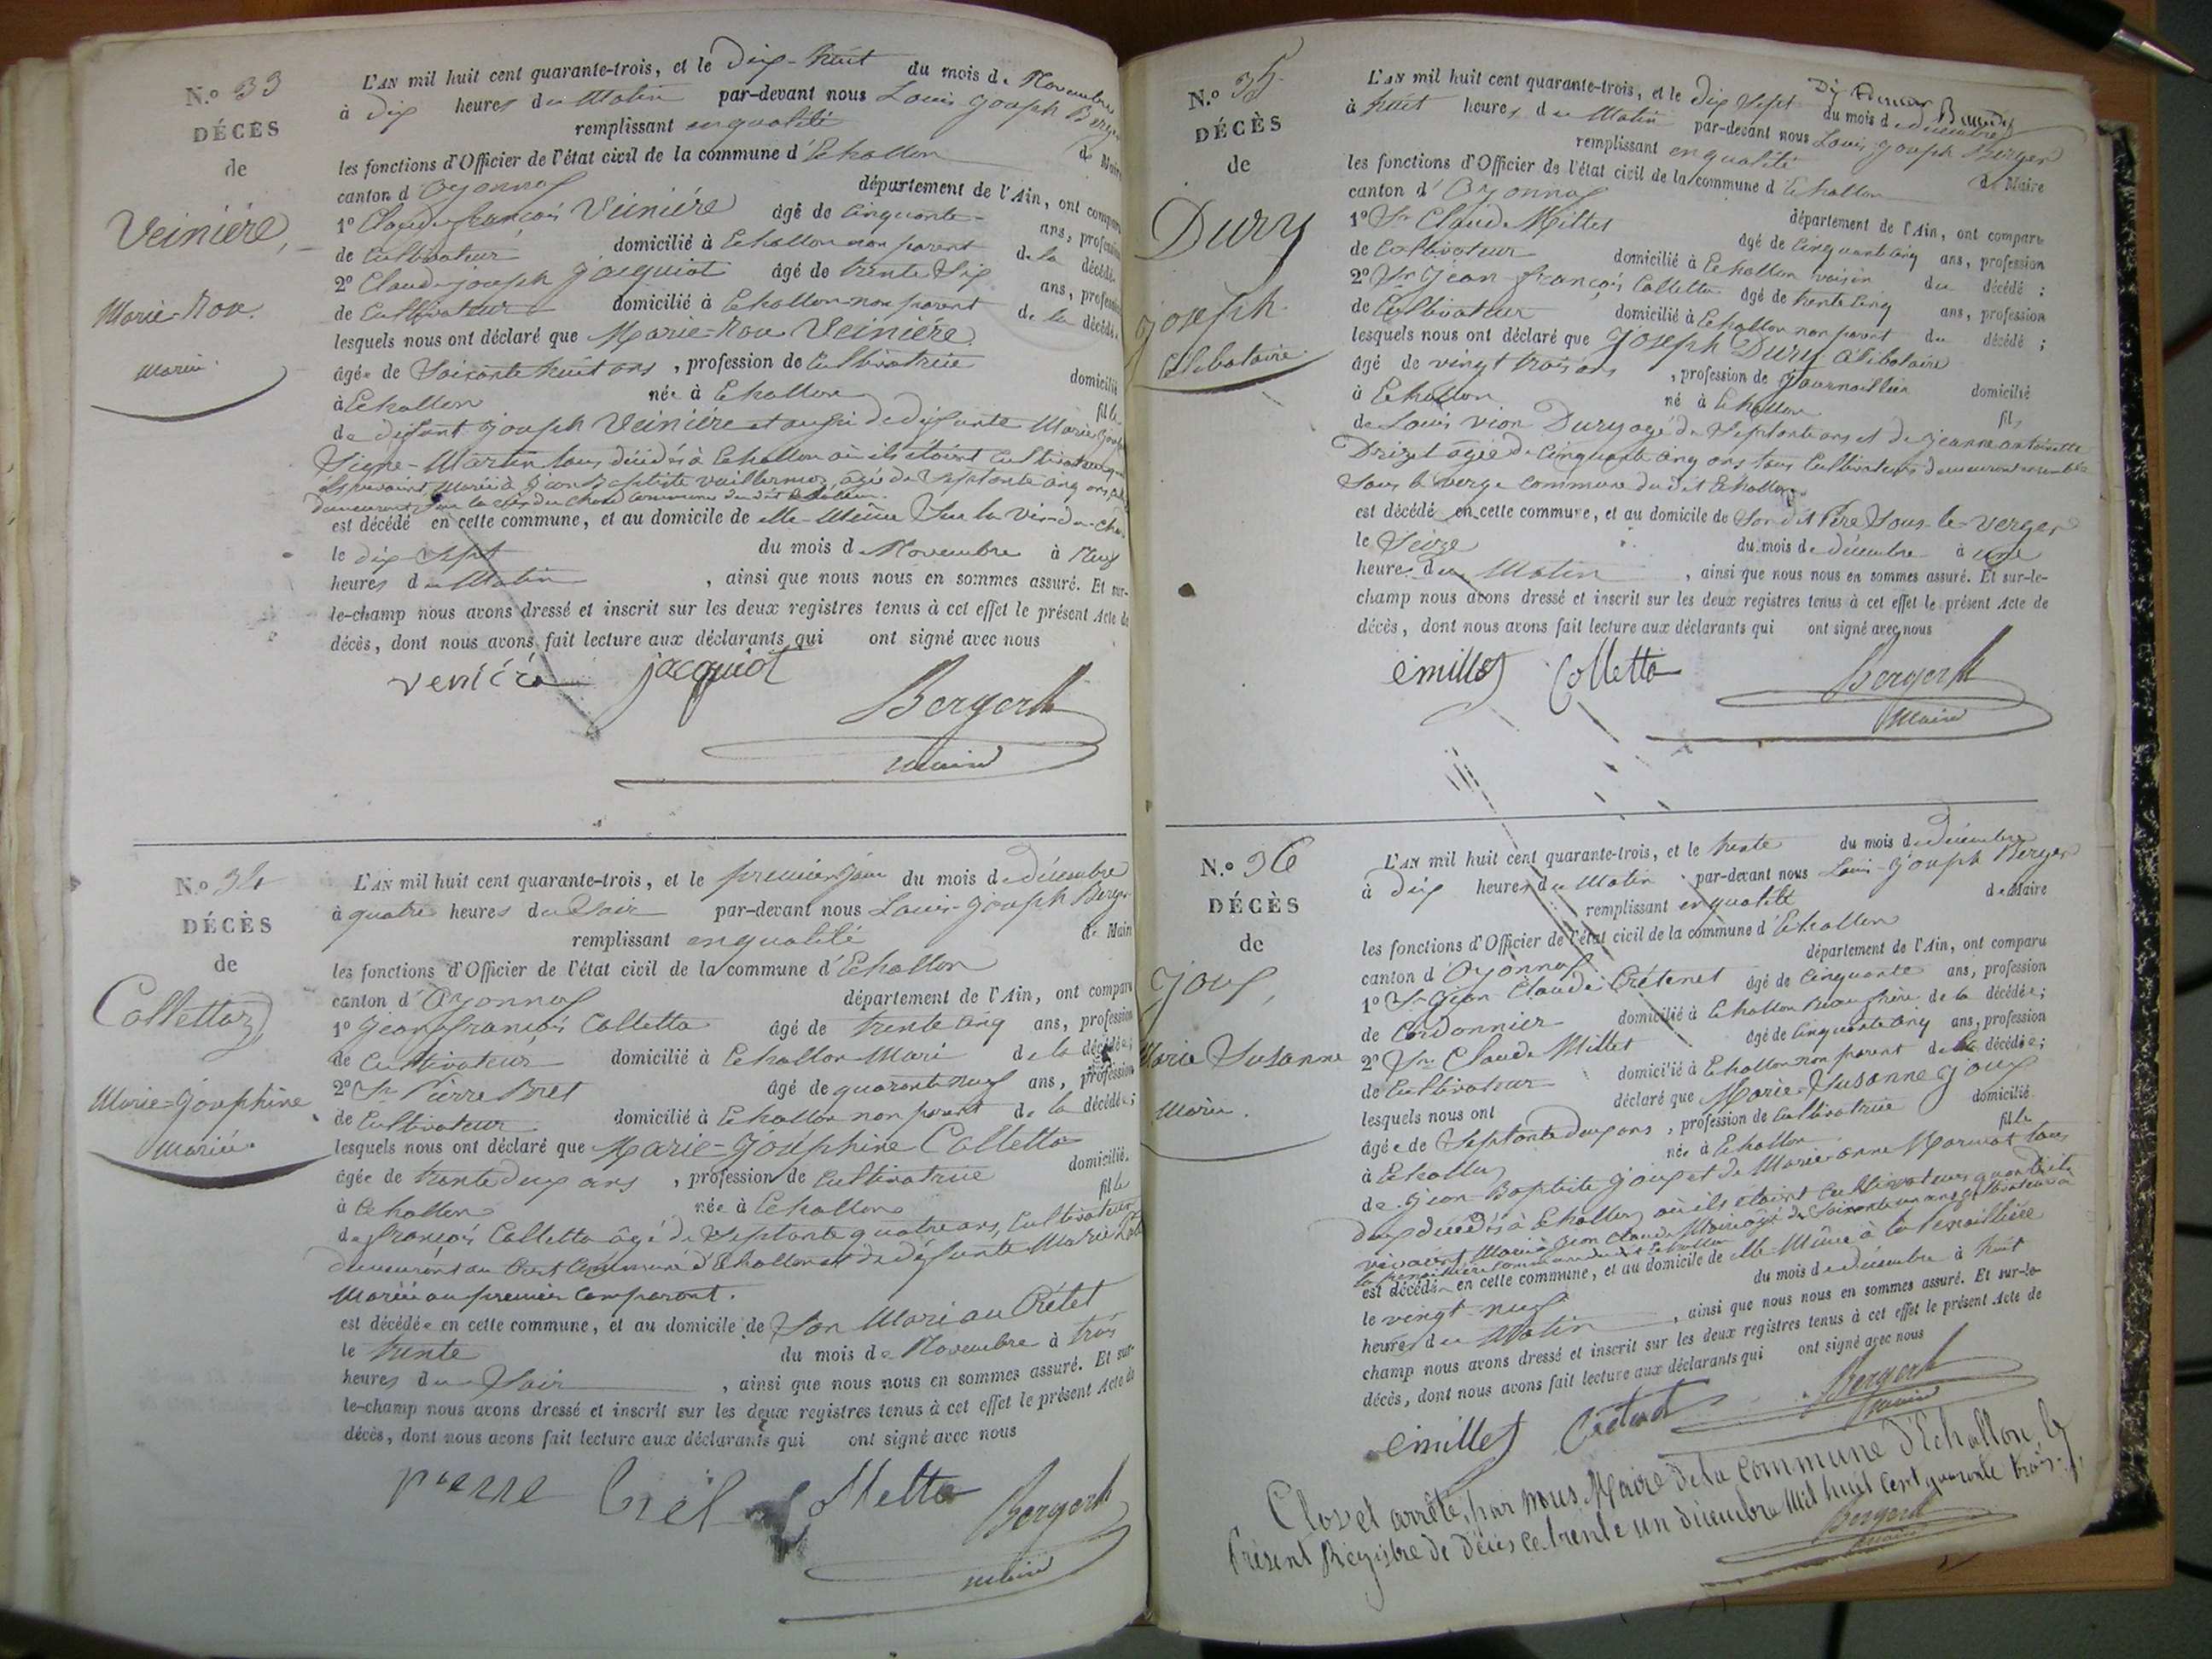 N.º 33
DÉCÈS
de
Veiniére,
Marie-Rose
Mariée
L'AN mil huit cent quarante-trois, et le dix-huit du mois de Novembre
à dix heures du Matin par-devant nous Louis Joseph Berger
remplissant en qualité de Maire
les fonctions d'Officier de l'état civil de la commune d'Echallon
canton d'Oyonnax département de l'Ain, ont comparu
1º Claude françois Veiniére âgé de Cinquante ans, profession
de Cultivateur domicilié à Echallon non parent de la décédée
2º Claude joseph Jacquiot âgé de trente Six ans, profession
de Cultivateur domicilié à Echallon non parent de la décédée
lesquels nous ont déclaré que Marie-Rose Veiniére
âgée de Soixante huit ans, profession de Cultivatrice domicilié
à Echallon née à Echallon fille
de défunt Joseph Veiniére et aussi de défunte Marie
Martin tous décédés à Echallon où ils étaient Cultivateurs
Mariée à Jean Baptiste Vuillermoz, âgé de Septante Cinq ans
demeurant commune du dit Echallon.
est décédé en cette commune, et au domicile de elle-Même Sur la
le dix-Sept du mois de Novembre à Neuf
heures du Matin, ainsi que nous nous en sommes assuré. Et sur-
le-champ nous avons dressé et inscrit sur les deux registres tenus à cet effet le présent Acte de
décès, dont nous avons fait lecture aux déclarants qui ont signé avec nous
veniére jacquiot
Bergert
maire
N.º 34
DÉCÈS
de
Collettaz,
Marie-Josephine
Mariée
L'AN mil huit cent quarante-trois, et le premier jour du mois de décembre
à quatre heures du Soir par-devant nous Louis-Joseph Berger
remplissant en qualité de Maire
les fonctions d'Officier de l'état civil de la commune d'Echallon
canton d'Oyonnax département de l'Ain, ont comparu
1º Jean françois Colletta âgé de trente Cinq ans, profession
de Cultivateur domicilié à Echallon Mari de la décédée;
2º Sr Pierre Bret âgé de quarante neuf ans, profession
de Cultivateur domicilié à Echallon non parent de la décédée;
lesquels nous ont déclaré que Marie-Josephine Colletta
âgée de trente deux ans, profession de Cultivatrice domicilié
à Echallon née à Echallon fille
de françois Colletta âgé de Septante quatre ans, Cultivateur
demeurant au Crêt Commune d'Echallon et de défunte Marie
Mariée au premier Comparant.
est décédée en cette commune, et au domicile de Son Mari au Crétet
le trente du mois de Novembre à trois
heures du Soir, ainsi que nous nous en sommes assuré. Et sur-
le-champ nous avons dressé et inscrit sur les deux registres tenus à cet effet le présent Acte de
décès, dont nous avons fait lecture aux déclarants qui ont signé avec nous
pierre Colletta
Bergert
maire
N.º 35
DÉCÈS
de
Dury
Joseph
Célibataire
L'AN mil huit cent quarante-trois, et le dix Sept du mois de décembre
à huit heures du Matin par-devant nous Louis Joseph Berger
remplissant en qualité de Maire
les fonctions d'Officier de l'état civil de la commune d'Echallon
canton d'Oyonnax département de l'Ain, ont comparu
1º Sr Claude Millet âgé de Cinquante Cinq ans, profession
de Cultivateur domicilié à Echallon voisin du décédé;
2º Sr Jean-françois Colletta âgé de trente Cinq ans, profession
de Cultivateur domicilié à Echallon non parent du décédé;
lesquels nous ont déclaré que Joseph Dury Célibataire
âgé de vingt trois ans, profession de Journaillier domicilié
à Echallon né à Echallon fils
de Louis Dury âgé de Septante ans et de Jeanne antoinette
âgée de Cinquante Cinq ans tous Cultivateurs demeurant ensemble
Sous le verger commune du dit Echallon
est décédé en cette commune, et au domicile de Son dit Père Sous-le-Verger
le Seize du mois de décembre à une
heure du Matin, ainsi que nous nous en sommes assuré. Et sur-le-
champ nous avons dressé et inscrit sur les deux registres tenus à cet effet le présent Acte de
décès, dont nous avons fait lecture aux déclarants qui ont signé avec nous
Cmillet Colletta
Bergert
Maire
N.º 36
DÉCÈS
de
Joux,
Marie Susanne
Mariée
L'AN mil huit cent quarante-trois, et le trente du mois de décembre
à dix heures du Matin par-devant nous Louis-Joseph Berger
remplissant en qualité de Maire
les fonctions d'Officier de l'état civil de la commune d'Echallon
canton d'Oyonnax département de l'Ain, ont comparu
1º Sr Jean-Claude Crétenet âgé de Cinquante ans, profession
de Cordonnier domicilié à Echallon beau frère de la décédée;
2º Sr Claude Millet âgé de Cinquante Cinq ans, profession
de Cultivateur domicilié à Echallon non parent de la décédée;
lesquels nous ont déclaré que Marie-Susanne Joux
âgée de Septante deux ans, profession de Cultivatrice domicilié
à Echallon née à Echallon fille
de Jean-Baptiste Joux et de Marie-anne Marmot tous
deux décédés à Echallon où ils étaient Cultivateurs quand ils
vivaient, Mariée Jean Claude âgé de Soixante un ans
est décédée en cette commune, et au domicile de elle-Même à la
le vingt-neuf du mois de décembre à huit
heures du Matin, ainsi que nous nous en sommes assuré. Et sur-le-
champ nous avons dressé et inscrit sur les deux registres tenus à cet effet le présent Acte de
décès, dont nous avons fait lecture aux déclarants qui ont signé avec nous
Cmillet
Bergert
maire
Clos et arrêté, par nous Maire de la Commune d'Echallon, le
Présent Régistre de Décès ce trente un décembre Mil huit Cent quarante trois.
Bergert
maire